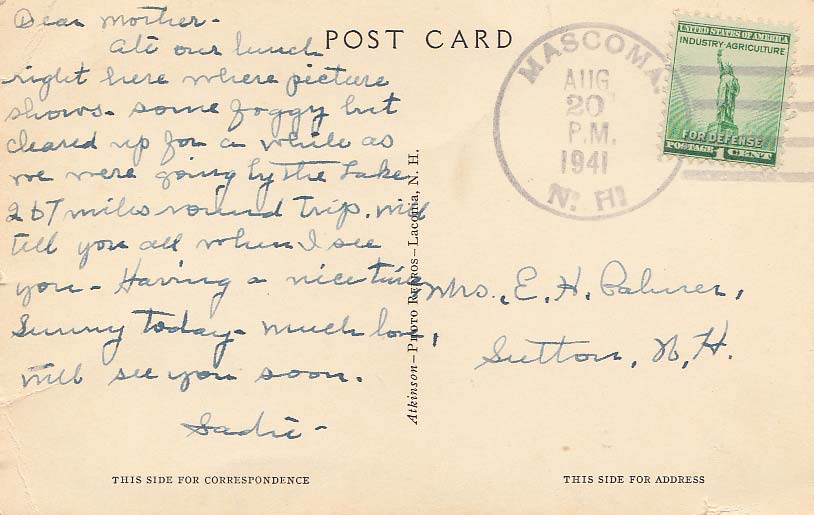 Dear Mother-
Ate our lunch
right here where picture
shows- some foggy but
cleared up for a while as
we were going by the Lake
267 miles round trip. will
tell you all when I see
you- Having a nice time
Sunny today- much love,
will see you soon.
Sadie-
THIS SIDE FOR CORRESPONDENCE
POST CARD
Atkinson-Photo Repros-Laconia, N. H.
MASCOMA.
AUG
20
P.M.
1941
N. H.
UNITED STATES OF AMERICA
INDUSTRY·AGRICULTURE
FOR DEFENSE
POSTAGE 1 CENT
Mrs. E. H. Palmer,
Sutton, N. H.
THIS SIDE FOR ADDRESS